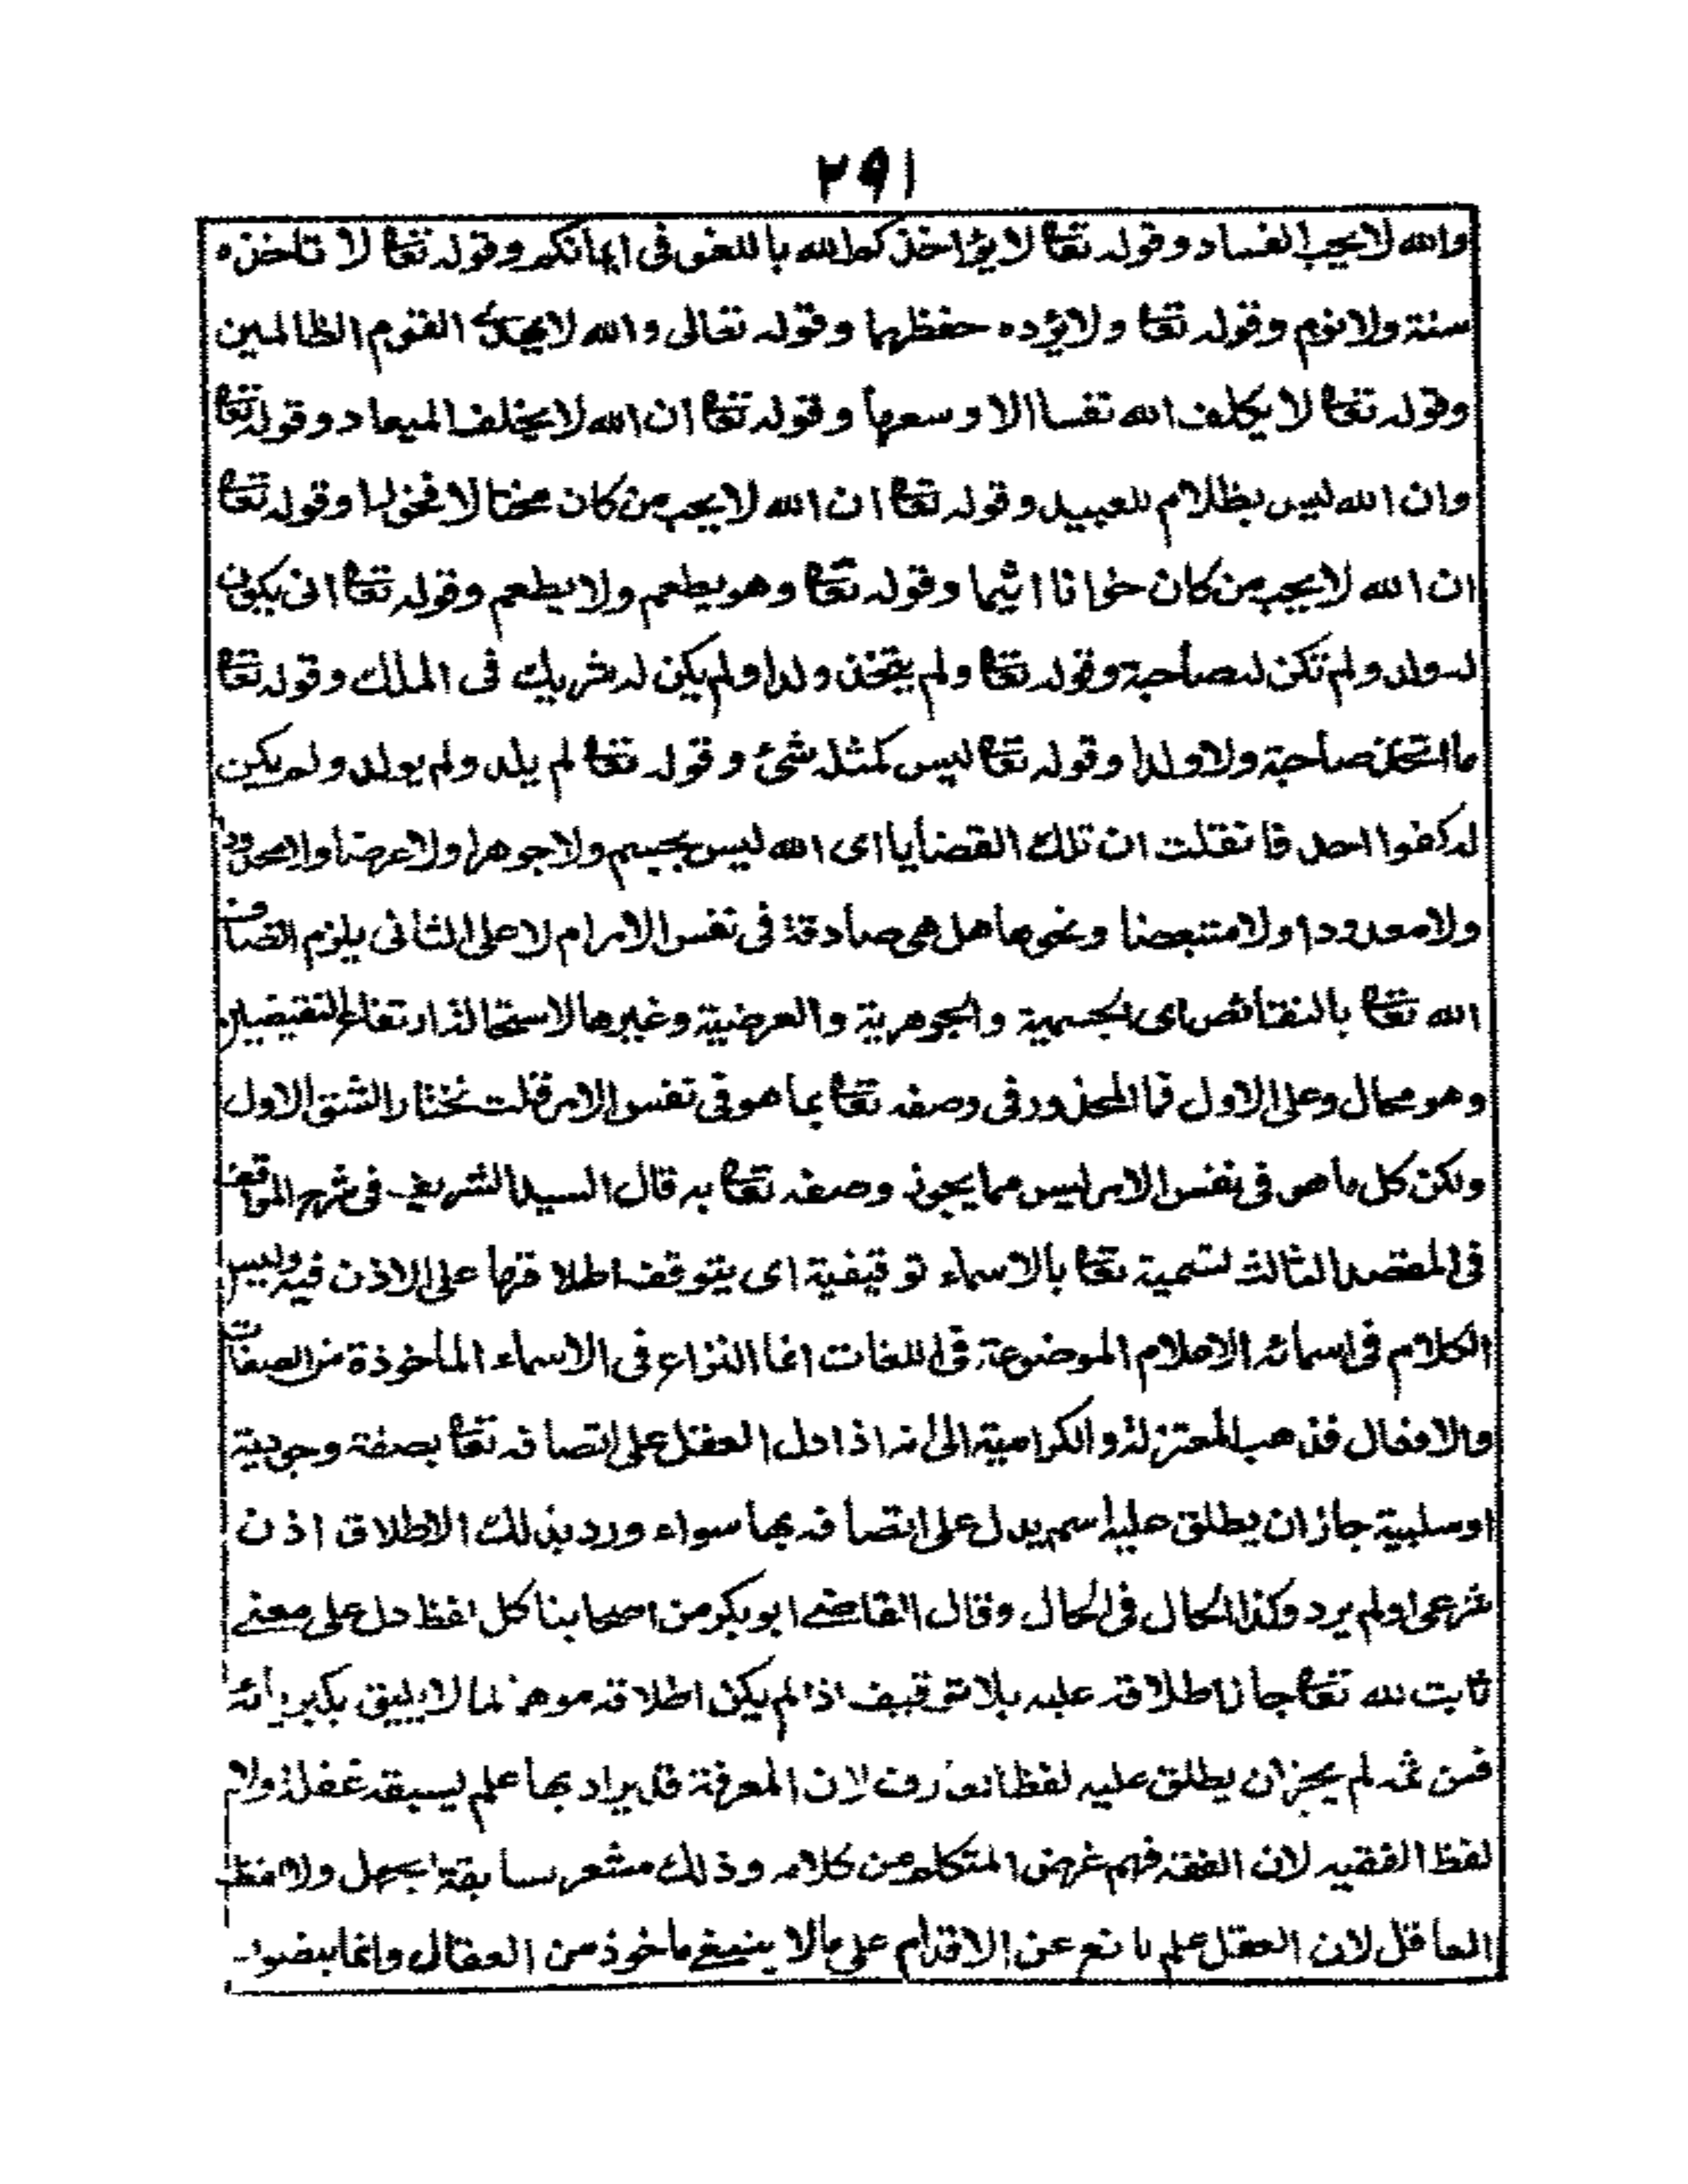 ٢٩١
والله لا يحب الفساد وقوله تعا لا يؤاخذكم الله باللغو فى ايمانكم وقوله تعا لا تاخذه
سنة ولا نوم وقوله تعا ولا يؤده حفظهما وقوله تعالى والله لا يهدى القوم الظالمين
وقوله تعا لا يكلف الله نفسا الا وسعها وقوله تعا ان الله لا يخلف الميعاد وقوله تعا
وان الله ليس بظلام للعبيد وقوله تعا ان الله لا يحب من كان مختالا فخورا وقوله تعا
ان الله لا يحب من كان خوانا اثيما وقوله تعا وهو يطعم ولا يطعم وقوله تعا انى يكون
له ولد ولم تكن له صاحبة وقوله تعا ولم يتخذ ولدا ولم يكن له شريك فى الملك وقوله تعا
ما اتخذ صاحبة ولا ولدا وقوله تعا ليس كمثله شئ وقوله تعا لم يلد ولم يولد ولم يكن
له كفوا احد فانقلت ان تلك القضايا اى الله ليس بجسم ولا جوهرا ولا عرضا ولا محدودا
ولا معدودا ولا متبعضا ونحوها هل هى صادقة فى نفس الامر ام لا على الثانى يلزم اتصاف
الله تعا بالنقائص اى الجسمية والجوهرية والعرضية وغيرها لاستحالة ارتفاع النقيضين
وهو محال وعلى الاول فما المحذور فى وصفه تعا بما هو فى نفس الامر قلت نختار الشق الاول
ولكن كل ما هو فى نفس الامر ليس مما يجوز وصفه تعا به قال السيد الشريف فى شرح المواقف
فى المقصد الثالث لتسمية تعا بالاسماء توقيفية اى يتوقف اطلاقها على الاذن فيه وليس
الكلام فى اسمائه الاعلام الموضوعة فى اللغات انما النزاع فى الاسماء الماخوذة من الصفات
والافعال فذهب المعتزلة والكرامية الى انه اذا دل العقل على اتصافه تعا بصفة وجودية
او سلبية جاز ان يطلق عليه اسم يدل على اتصافه بها سواء ورد بذلك الاطلاق اذن
شرعى او لم يرد وكذا الحال فى الحال وقال القاضى ابو بكر من اصحابنا كل لفظ دل على معنى
ثابت لله تعا جاز اطلاقه عليه بلا توقيف اذا لم يكن اطلاقه موهما لما لا يليق بكبريائه
فمن ثمه لم يجز ان يطلق عليه لفظ العارف لان المعرفة قد يراد بها علم يسبقه غفلة ولا
لفظ الفقيه لان الفقه فهم غرض المتكلم من كلامه وذلك مشعر بسابقة الجهل ولا لفظ
العاقل لان العقل علم مانع عن الاقدام على ما لا ينبغى ماخوذ من العقال وانما يتصور